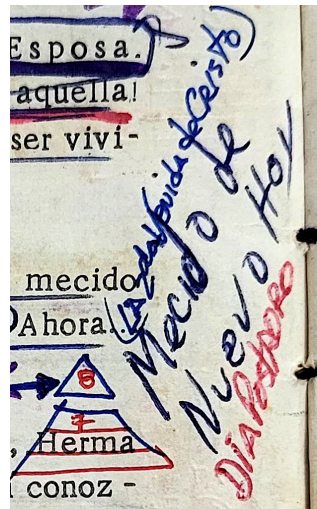 Esposa.
aquella!
ser vivi-
mecido
Ahora...
8
7
, Herma
conoz-
(La 2da Venida de Cristo)
Mecido de
Nuevo Hoy
Día Postrero